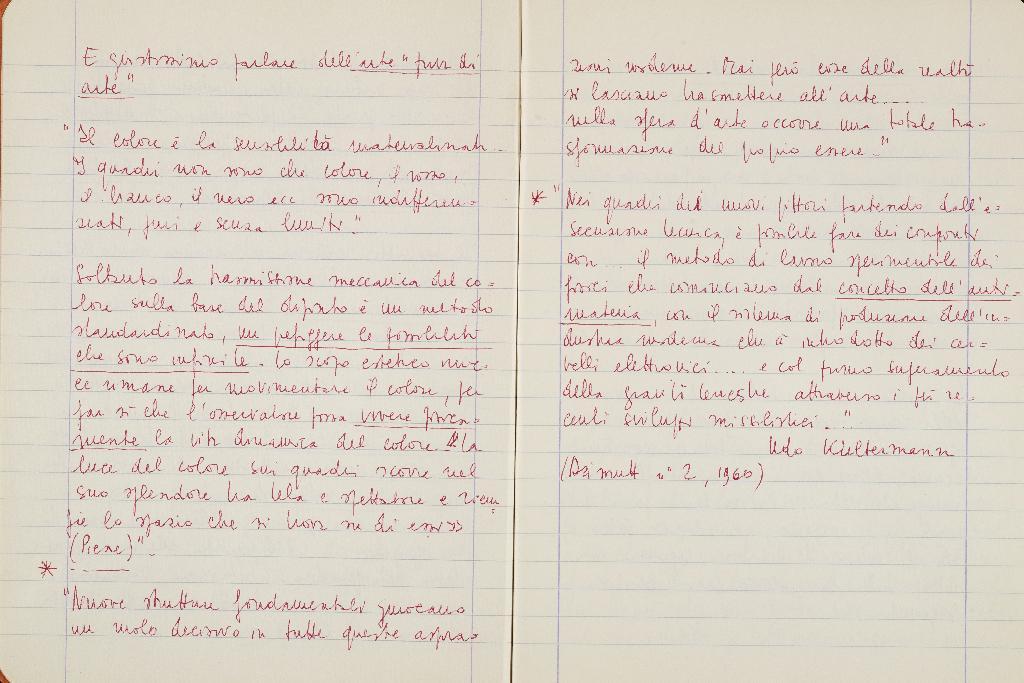 E giustissimo parlare dell'arte "fuori di
arte"
"Il colore è la sensibilità materializzata.
I quadri non sono che colore, il rosso,
il bianco, il nero ecc sono indifferen-
ziati, puri e senza limiti."
Soltanto la trasmissione meccanica del co-
lore sulla base del dipinto è un metodo
standardizzato, un leggere le possibilità
che sono infinite. Lo scopo estetico inve-
ce rimane per movimentare il colore, per
far sì che l'osservatore possa vivere
mente la vita dinamica del colore. "La
luce del colore sui quadri scorre nel
suo splendore tra tela e spettatore e riem
pie lo spazio che si trova su di essi"
(Piene)".
*
"Nuove strutture fondamentali giuocano
un ruolo decisivo in tutte queste aspira-
zioni moderne. Mai però cose della realtà
si lasciano trasmettere all'arte.....
nella sfera d'arte occorre una totale tra-
sformazione del proprio essere."
* "Nei quadri dei nuovi pittori partendo dall'e-
secuzione tecnica, è possibile fare dei confronti
con... il metodo di lavoro sperimentale dei
fisici che cominciano dal concetto dell'anti-
materia, con il sistema di produzione dell'in-
dustria moderna che è introdotto dei cer-
velli elettronici.... e col primo superamento
della gravità terrestre attraverso i più re-
centi sviluppi missilistici..."
Udo Kultermann
(Azimuth n° 2, 1960)